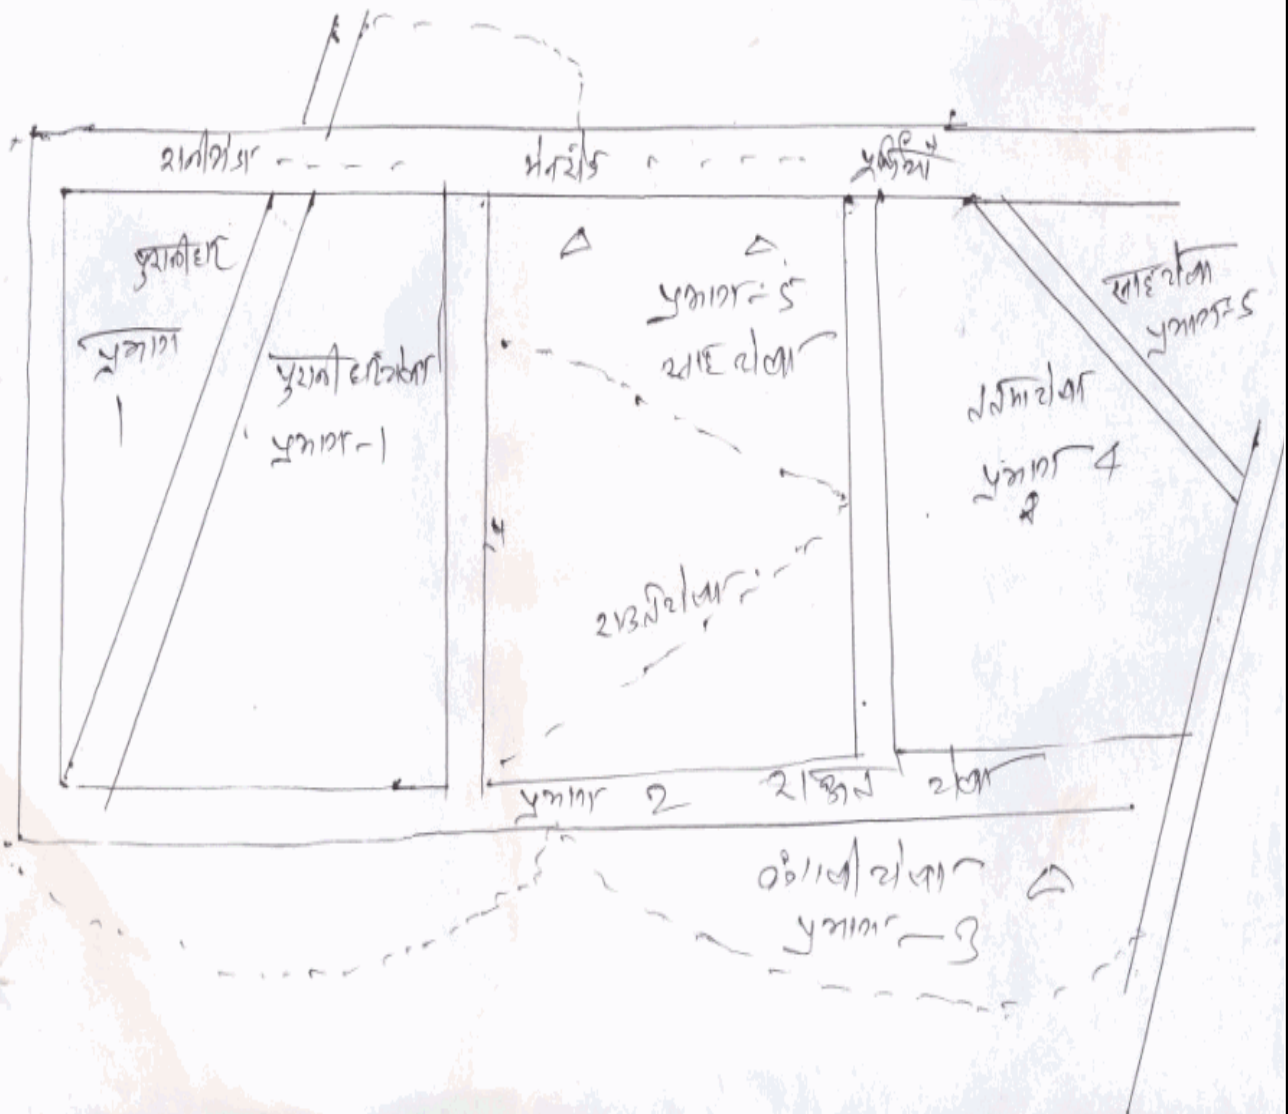 रानीगंज - - - मेनरोड - - - पूर्णियाँ
पुरानीहाट
प्रभाग
1
पुरानी हाटटोला
प्रभाग-1
प्रभाग-5
साह टोला
साह टोला
प्रभाग-5
टोला
प्रभाग 4
राऊनटोला
प्रभाग 2 राऊन टोला
बंगाली टोला
प्रभाग-3